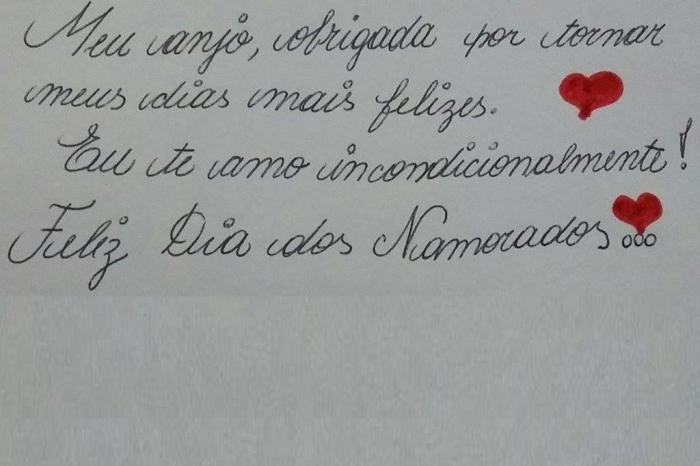 Meu anjo, obrigada por tornar
meus dias mais felizes.
Eu te amo incondicionalmente!
Feliz Dia dos Namorados...